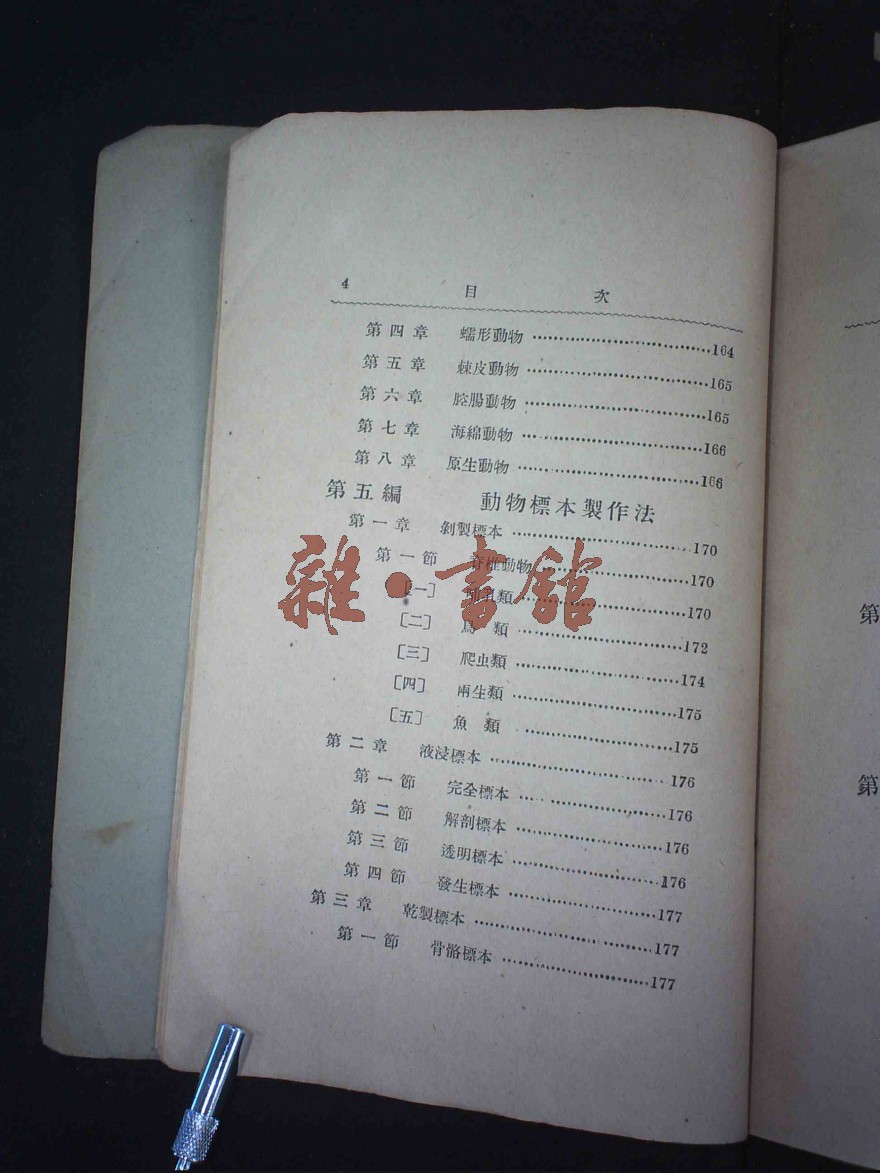 4 目 次
第四章 蠕形動物 164
第五章 棘皮動物 165
第六章 腔腸動物 165
第七章 海綿動物 166
第八章 原生動物 166
第五編 動物標本製作法
第一章 剝製標本 170
第一節 脊椎動物 170
[一] 哺乳類 170
[二] 鳥類 172
[三] 爬虫類 174
[四] 兩生類 175
[五] 魚類 175
第二章 液浸標本 176
第一節 完全標本 176
第二節 解剖標本 176
第三節 透明標本 176
第四節 發生標本 177
第三章 乾製標本 177
第一節 骨骼標本 177
雜·書館
第
第